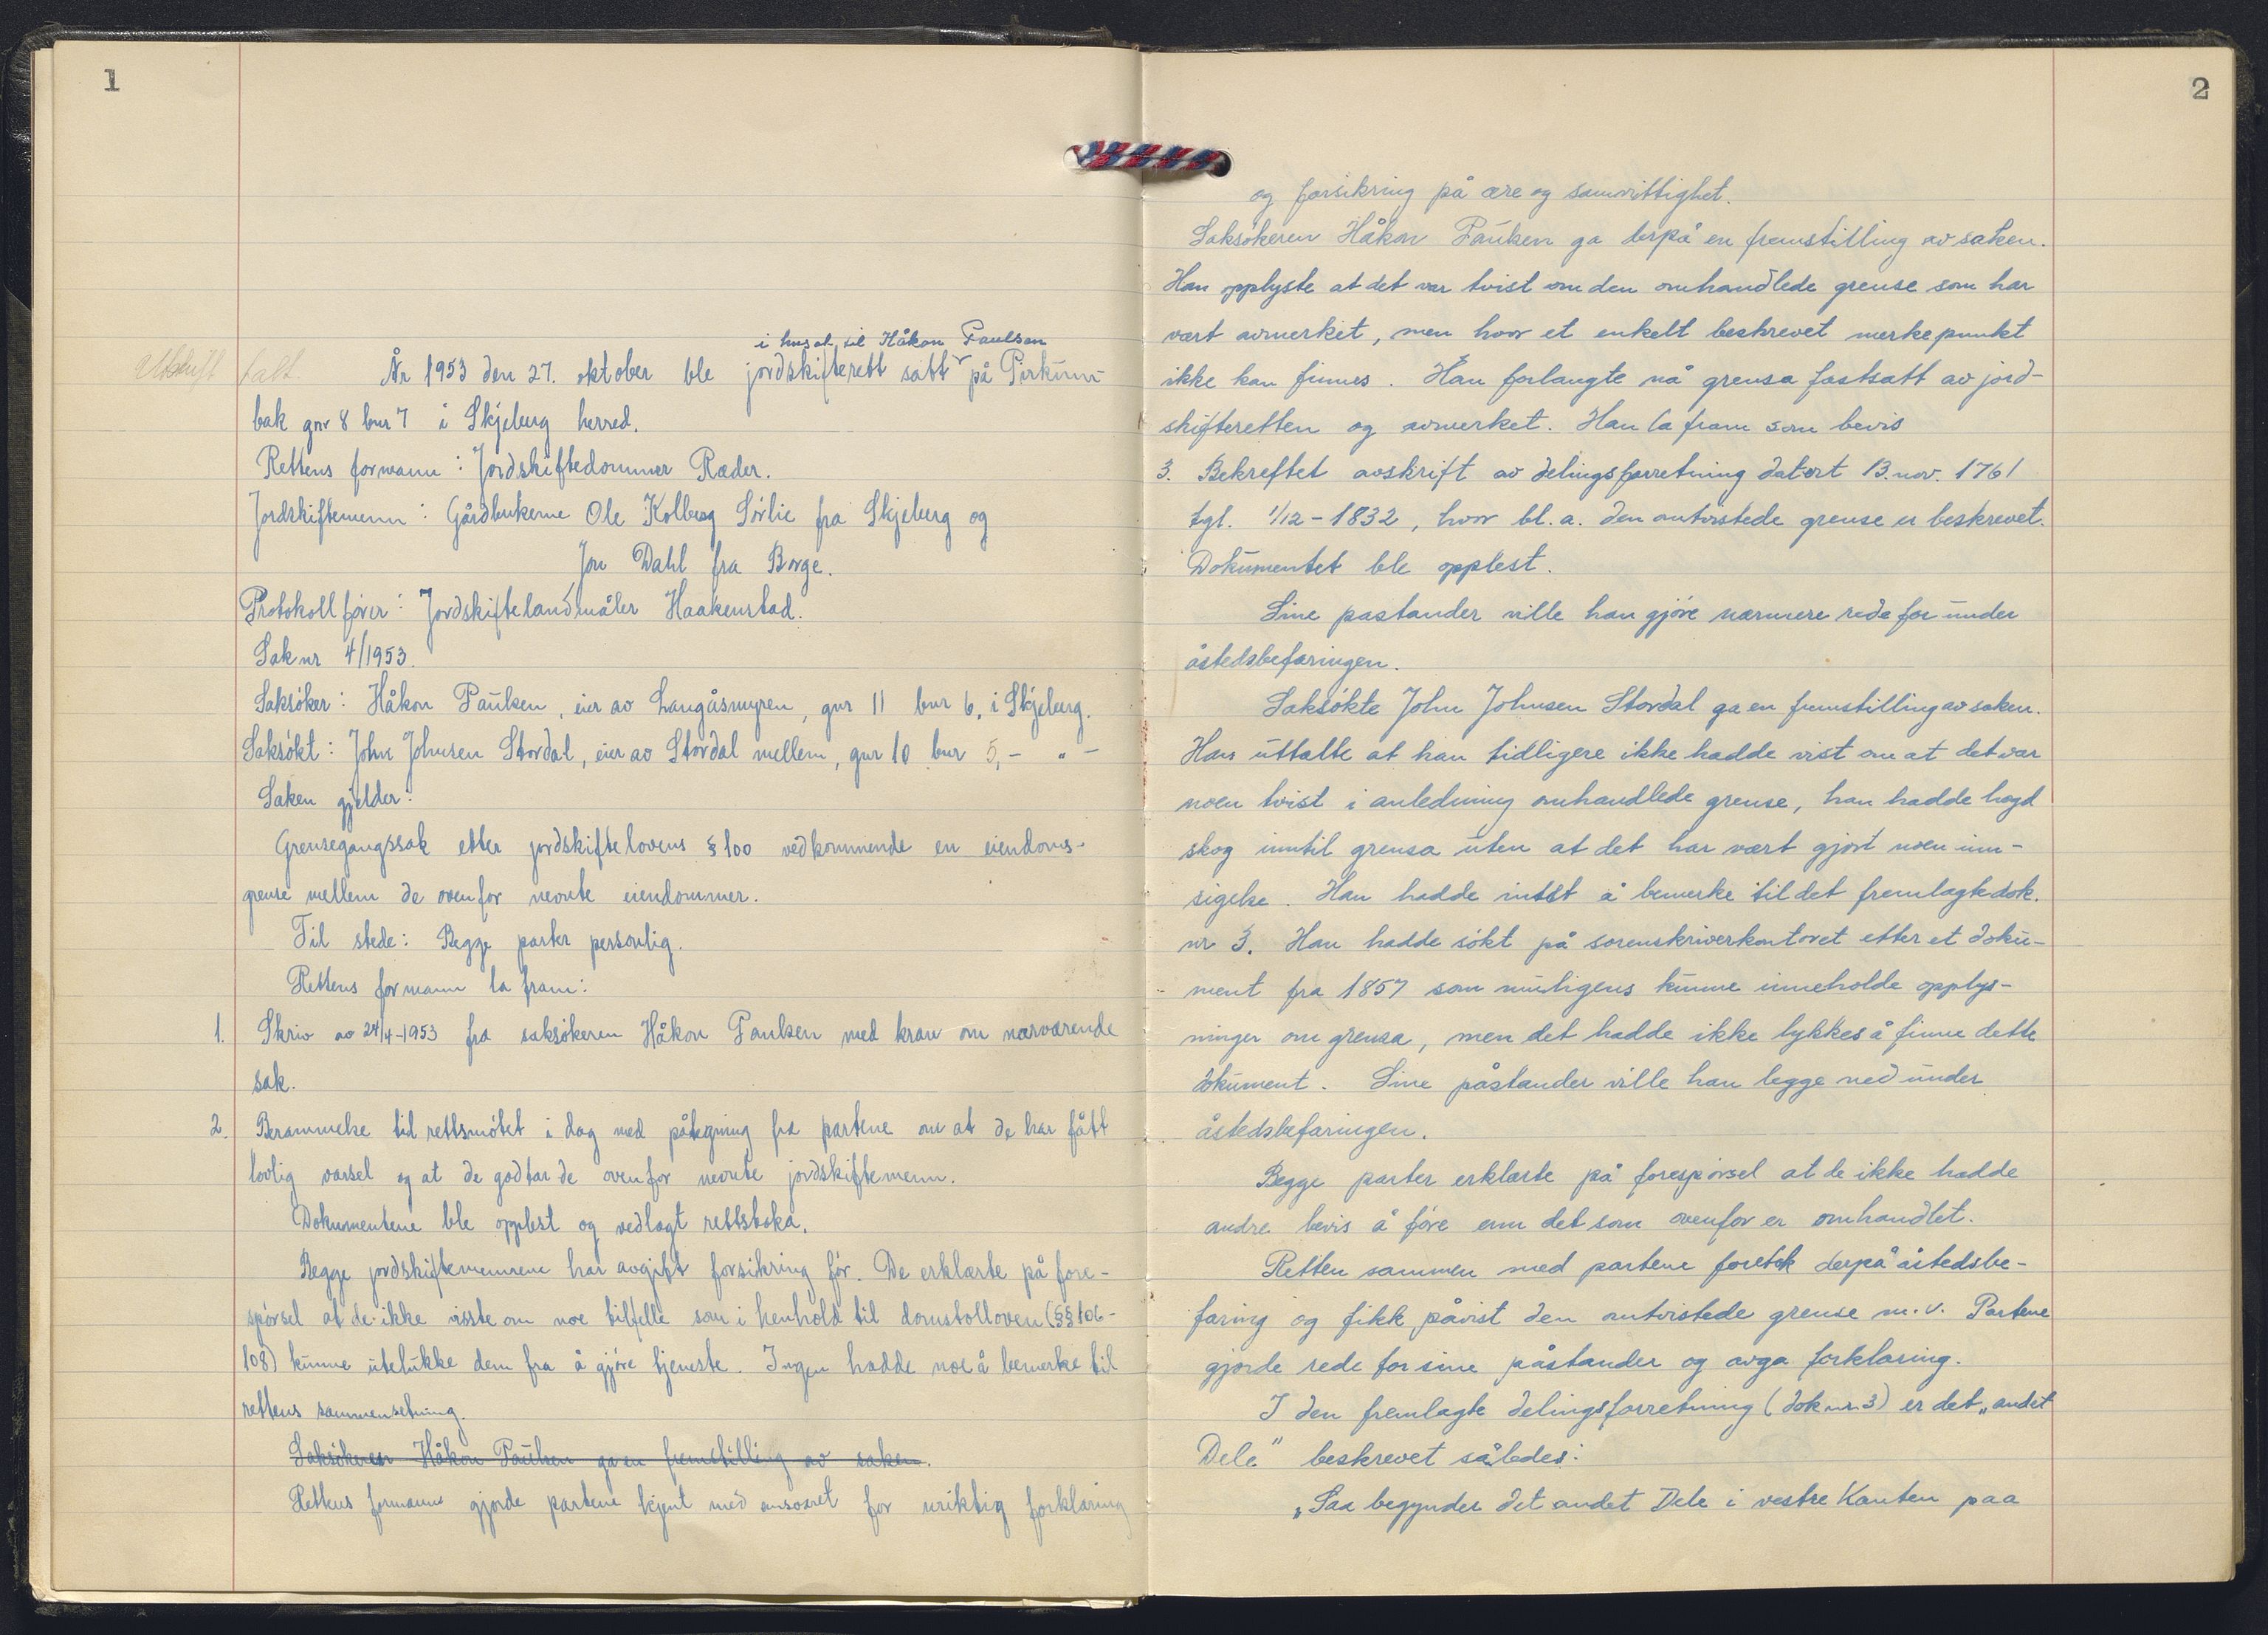 1
i huset til Håkon Paulsen
Utskrift tatt. År 1953 den 27. oktober ble jordskifterett satt på Pirkunn-
bak gnr 8 bnr 7 i Skjeberg herred.
Rettens formann: Jordskiftedommer Ræder.
Jordskiftemenn: Gårdbrukerne Ole Kolberg Sørlie fra Skjeberg og
Jon Dahl fra Borge.
Protokollfører: Jordskiftelandmåler Haakenstad.
Sak nr 4/1953.
Saksøker: Håkon Paulsen, eier av Langåsmyren, gnr 11 bnr 6, i Skjeberg.
Saksøkt: John Johnsen Stordal, eier av Stordal mellem, gnr 10 bnr 5, - " -
Saken gjelder:
Grensegangssak etter jordskiftelovens § 100 vedkommende en eiendoms-
grense mellem de ovenfor nevnte eiendommer.
Til stede: Begge parter personlig.
Rettens formann la fram:
1. Skriv av 24/4-1953 fra saksøkeren Håkon Paulsen med krav om nærværende
sak.
2. Berammelse til rettsmøtet i dag med påtegning fra partene om at de har fått
lovlig varsel og at de godtar de ovenfor nevnte jordskiftemenn.
Dokumentene ble opplest og vedlagt rettsboka.
Begge jordskiftemennene har avgitt forsikring før. De erklærte på fore-
spørsel at de ikke visste om noe tilfelle som i henhold til domstolloven (§§ 106-
108) kunne utelukke dem fra å gjøre tjeneste. Ingen hadde noe å bemerke til
rettens sammensetning.
Saksøkeren Håkon Paulsen ga en fremstilling av saken.
Rettens formann gjorde partene kjent med ansvaret for uriktig forklaring
2
og forsikring på ære og samvittighet.
Saksøkeren Håkon Paulsen ga derpå en fremstilling av saken.
Han opplyste at det var tvist om den omhandlede grense som har
vært avmerket, men hvor et enkelt beskrevet merkepunkt
ikke kan finnes. Han forlangte nå grensa fastsatt av jord-
skifteretten og avmerket. Han la fram som bevis
3. Bekreftet avskrift av delingsforretning datert 13. nov. 1761
tgl. 1/12-1832, hvor bl.a. den omtvistede grense er beskrevet.
Dokumentet ble opplest.
Sine pastander ville han gjøre nærmere rede for under
åstedsbefaringen.
Saksøkte John Johnsen Stordal ga en fremstilling av saken.
Han uttalte at han tidligere ikke hadde vist om at det var
noen tvist i anledning omhandlede grense, han hadde hogd
skog inntil grensa uten at det har vært gjort noen inn-
sigelse. Han hadde intet å bemerke til det fremlagte dok.
nr 3. Han hadde søkt på sorenskriverkontoret etter et doku-
ment fra 1857 som muligens kunne inneholde opplys-
ninger om grensa, men det hadde ikke lykkes å finne dette
dokument. Sine påstander ville han legge ned under
åstedsbefaringen.
Begge parter erklærte på forespørsel at de ikke hadde
andre bevis å føre enn det som ovenfor er omhandlet.
Retten sammen med partene foretok derpå åstedsbe-
faring og fikk påvist den omtvistede grense m.v. Partene
gjorde rede for sine påstander og avga forklaring.
I den fremlagte delingsforretning (dok nr 3) er det „andet
Dele" beskrevet således:
„Saa begynder det andet Dele i vestre Kanten paa